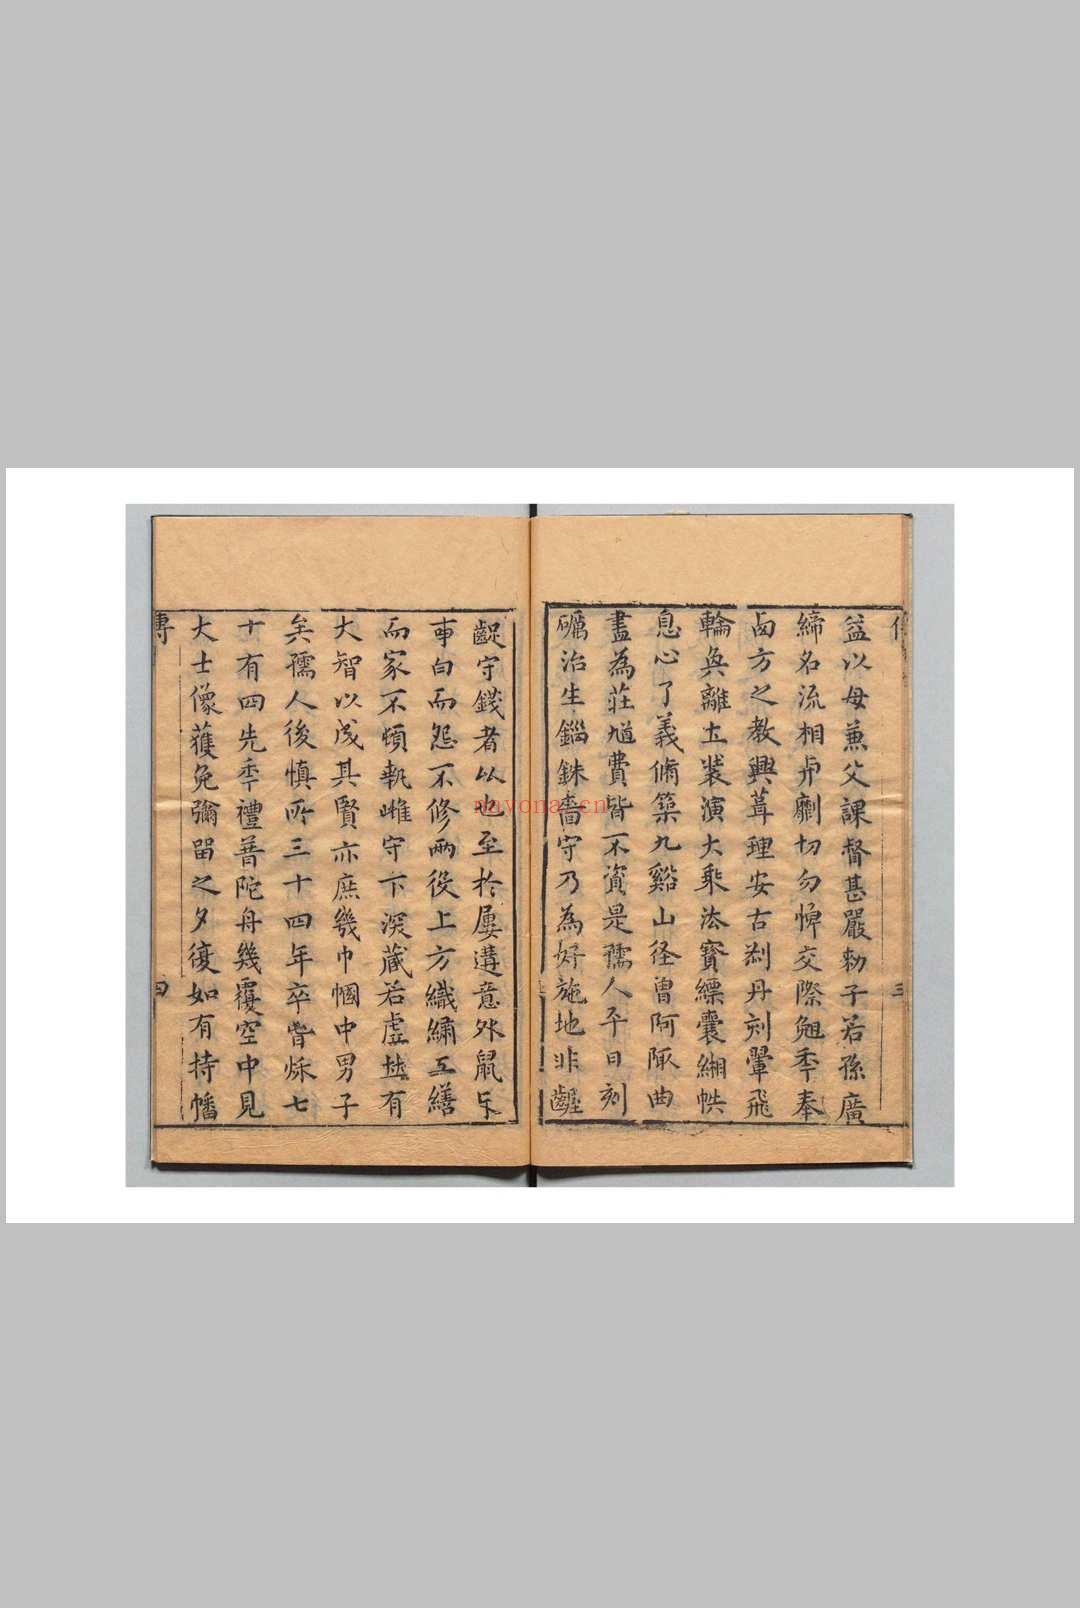 益以母兼父課督甚嚴勑子若孫廣
締名流相與劘切勿憚交際勉秊奉
西方之教興葺理安古刹丹刻翬飛
輪奐離立裝演大乘法寳縹囊緗帙
息心了義脩築九谿山徑曾阿陬曲
盡為莊馗費皆不資是孺人平日刻
礪治生錙銖嗇守乃為好施地非齷
齪守錢者以也至於屢遘意外鼠牙
事白而怨不修兩役上方織繡工繕
而家不傾執雌守下深藏若虛兹有
大智以成其賢亦庶幾巾幗中男子
矣孺人後慎所三十四年卒昏烁七
十有四先秊禮普陀舟幾覆空中見
大士像獲免彌留之夕復如有持幡
傳
四
三
nayona.cn